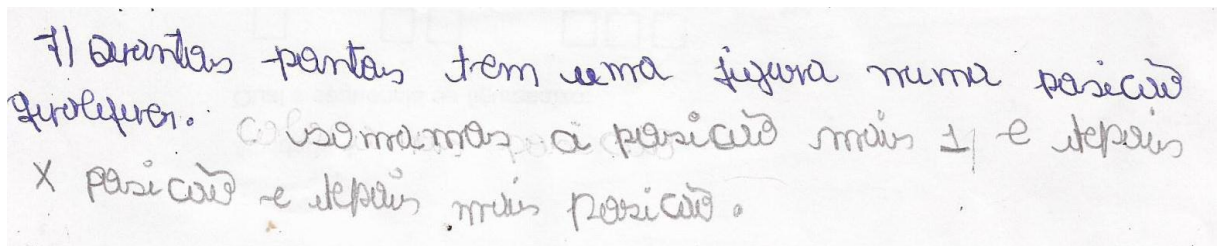 7) Quantas pontas trem uma figura numa posição
qualquer.
somamos a posicão mais 1 e depois
X posicão e depois mais posicão.